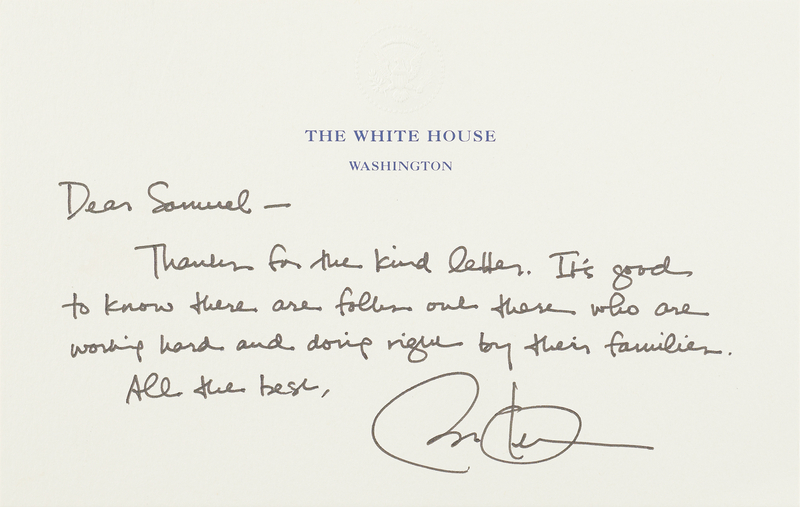 THE WHITE HOUSE
WASHINGTON
Dear Samuel —
Thanks for the kind letter. It's good
to know there are folks out there who are
working hard and doing right by their families.
All the best,